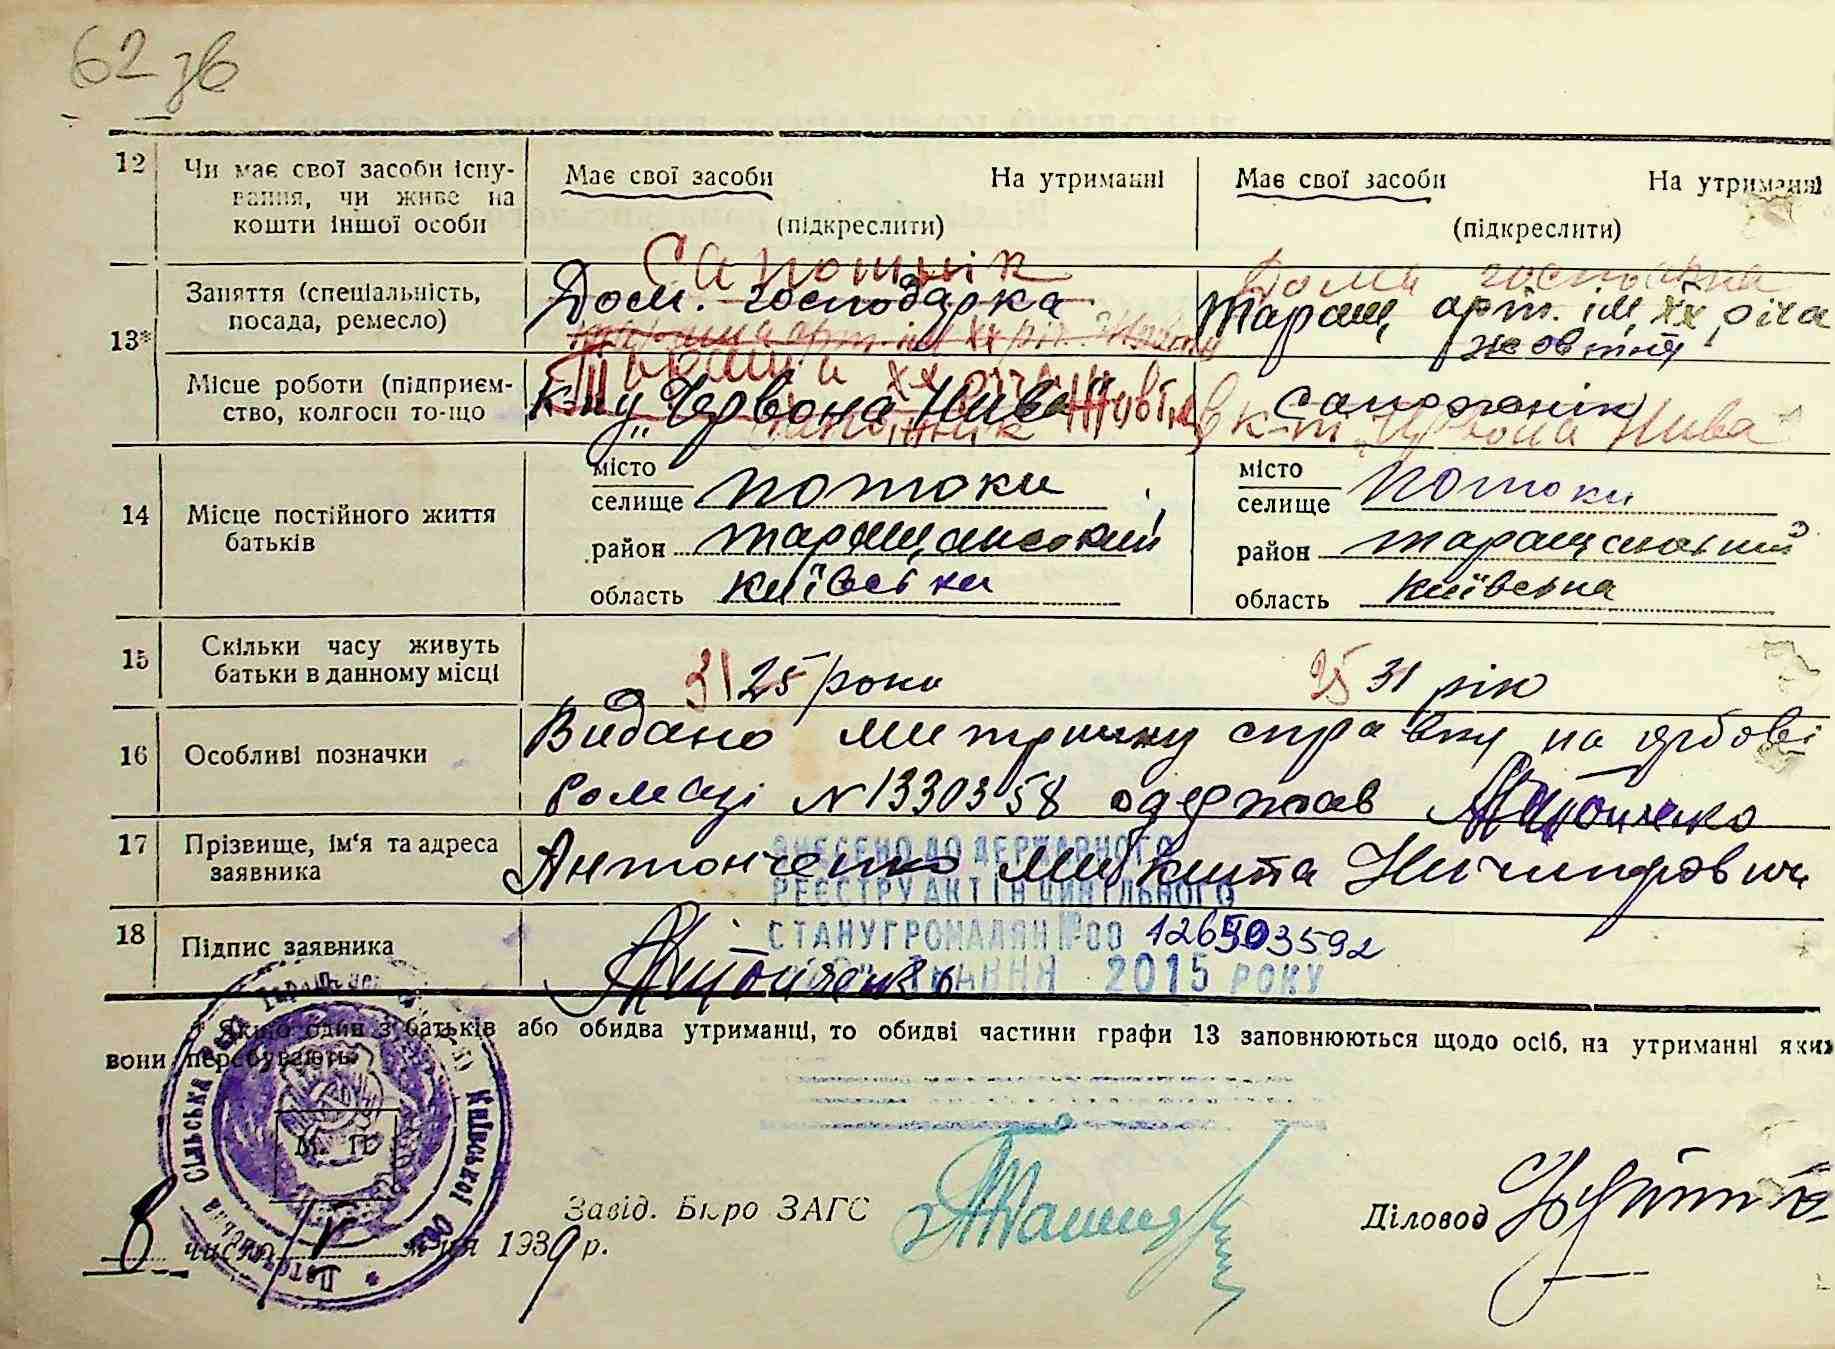 62 зв
12 Чи має свої засоби існу-
вання, чи живе на
кошти іншої особи
Має свої засоби На утриманні
(підкреслити)
Має свої засоби На утриманні
(підкреслити)
13*
Заняття (спеціальність,
посада, ремесло)
Сапожнік
Дом. господарка
Дома господарка
Таращ. арт. ім. ХХ річа
жовтня
Місце роботи (підприєм-
ство, колгосп то-що
к-пу „Червона Нива"
сапожнік
в к-т „Червона Нива
14 Місце постійного життя
батьків
місто
селище Потоки
район таращанський
область київська
місто
селище Потоки
район таращанський
область київська
15 Скільки часу живуть
батьки в данному місці
31 25 роки
25 31 рік
16 Особливі позначки
Видано метричну справку на гербові
бомазі N 1330358 одержав Антонченко
17 Прізвище, ім'я та адреса
заявника
Антонченко Микита Ничипорович
ВНЕСЕНО ДО ДЕРЖАВНОГО
РЕЄСТРУ АКТІВ ЦИВІЛЬНОГО
СТАНУ ГРОМАДЯН №00 126503592
ТРАВНЯ 2015 РОКУ
18 Підпис заявника
Антонченко
* Якщо один з батьків або обидва утриманці, то обидві частини графи 13 заповнюються щодо осіб, на утриманні яких
вони перебувають.
Сільська Київської
М. П.
Завід. Бюро ЗАГС
Діловод
8 числа м-ця 1939 р.